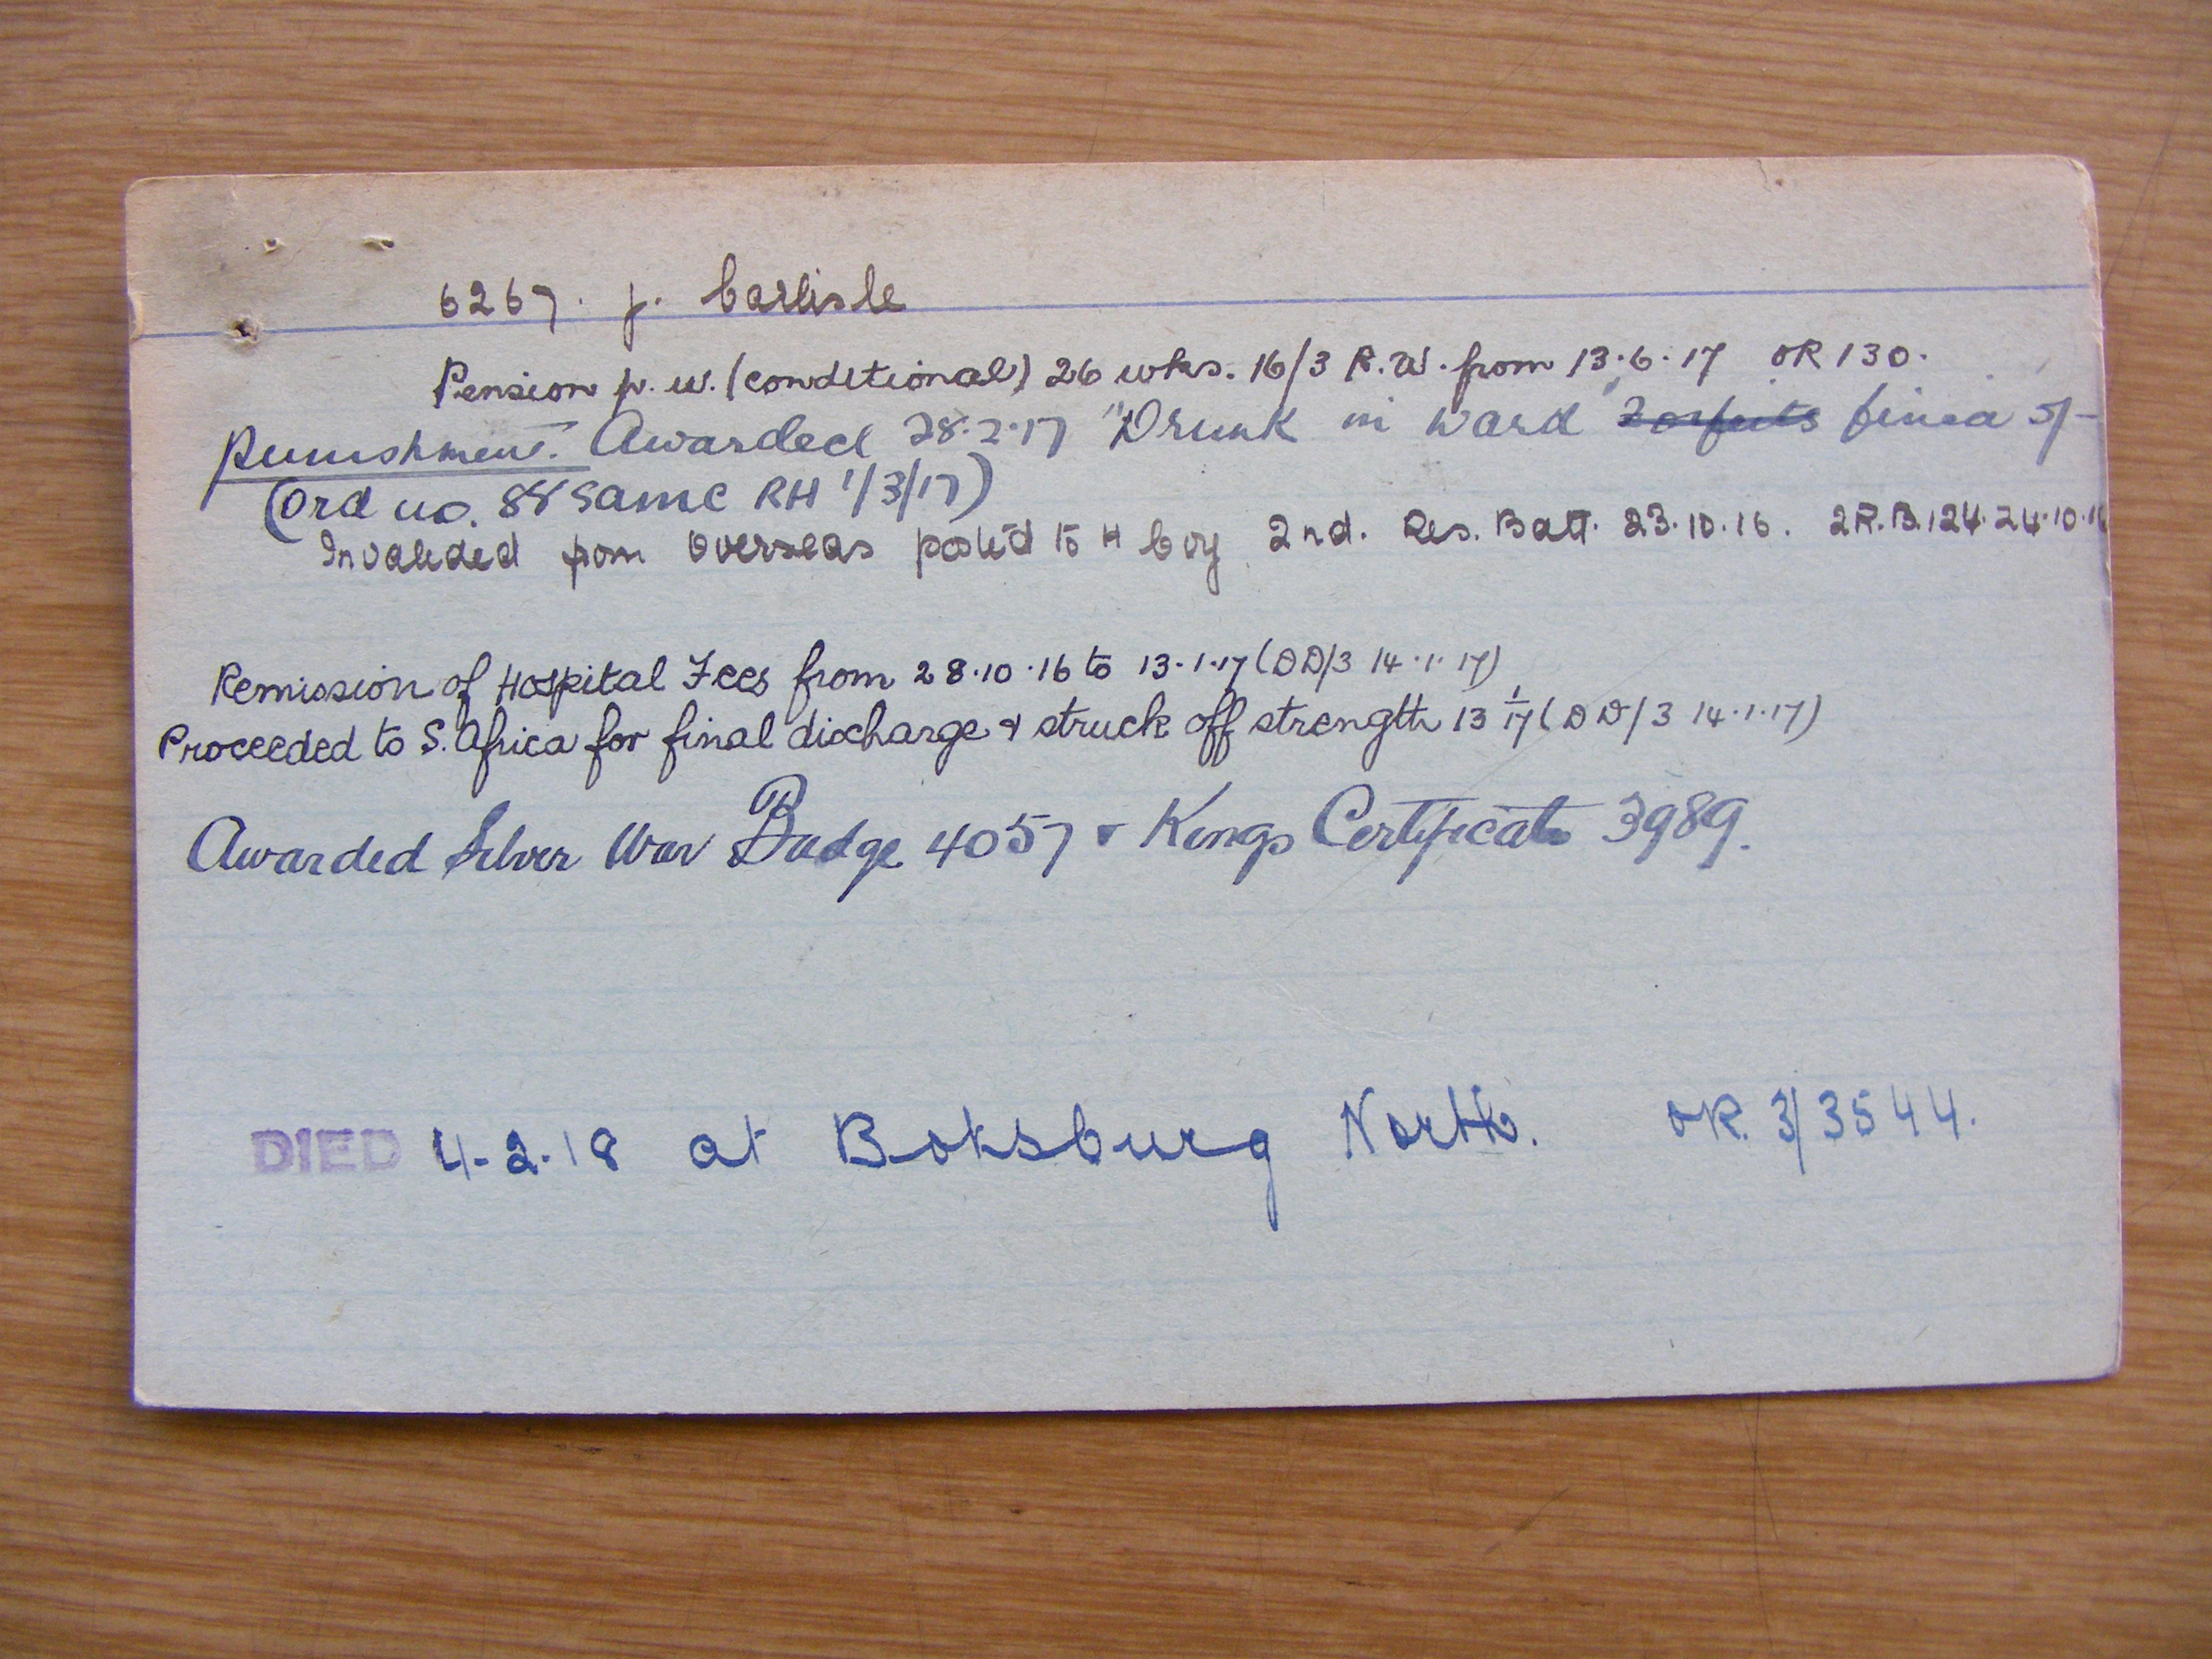 6267. J. Carlisle
Pension p.w. (conditional) 26 wks. 16/3 R.W. from 13.6.17 OR 130.
Punishment. Awarded 28.2.17 "Drunk in Ward" forfeits fined 5/-
(Ord no. 88 same RH 1/3/17)
Invalided from Overseas posted to H Coy 2nd. Res. Batt. 23.10.16. 2R.B.124. 24.10.16
Remission of Hospital Fees from 28.10.16 to 13.1.17 (DD/3 14.1.17)
Proceeded to S. Africa for final discharge & struck off strength 13/1/17 (DD/3 14.1.17)
Awarded Silver War Badge 4057 & Kings Certificate 3989.
DIED 4.2.18 at Boksburg North. OR. 3/3544.